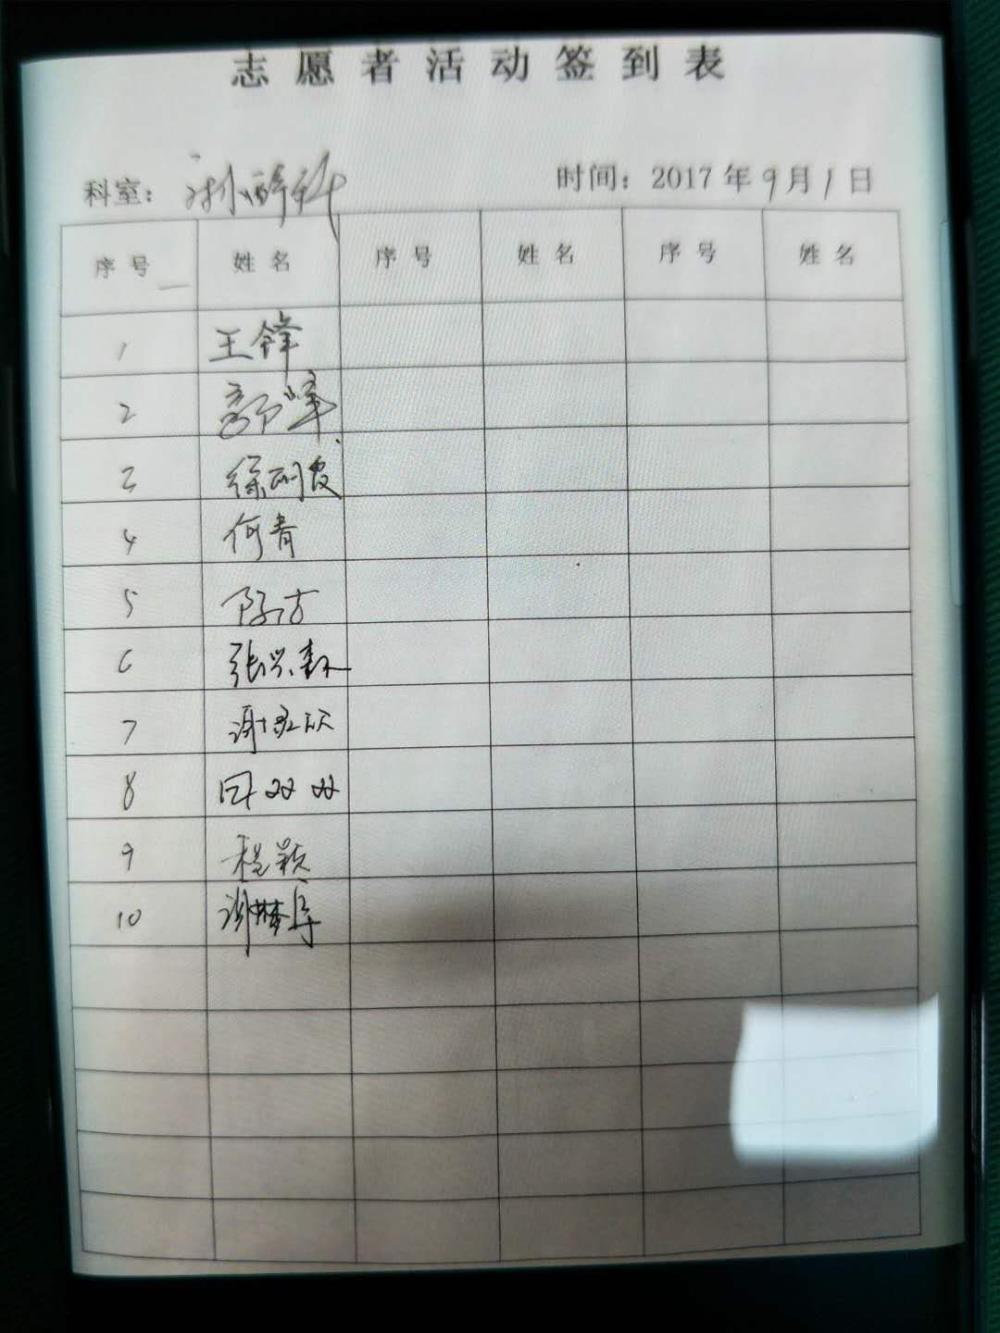 志愿者活动签到表
科室： 时间：2017年9月1日
序号 姓名 序号 姓名 序号 姓名
1 王锋
2
3 徐丽霞
4 何青
5 陈洁
6
7
8 田双双
9 程颖
10 谢梦婷